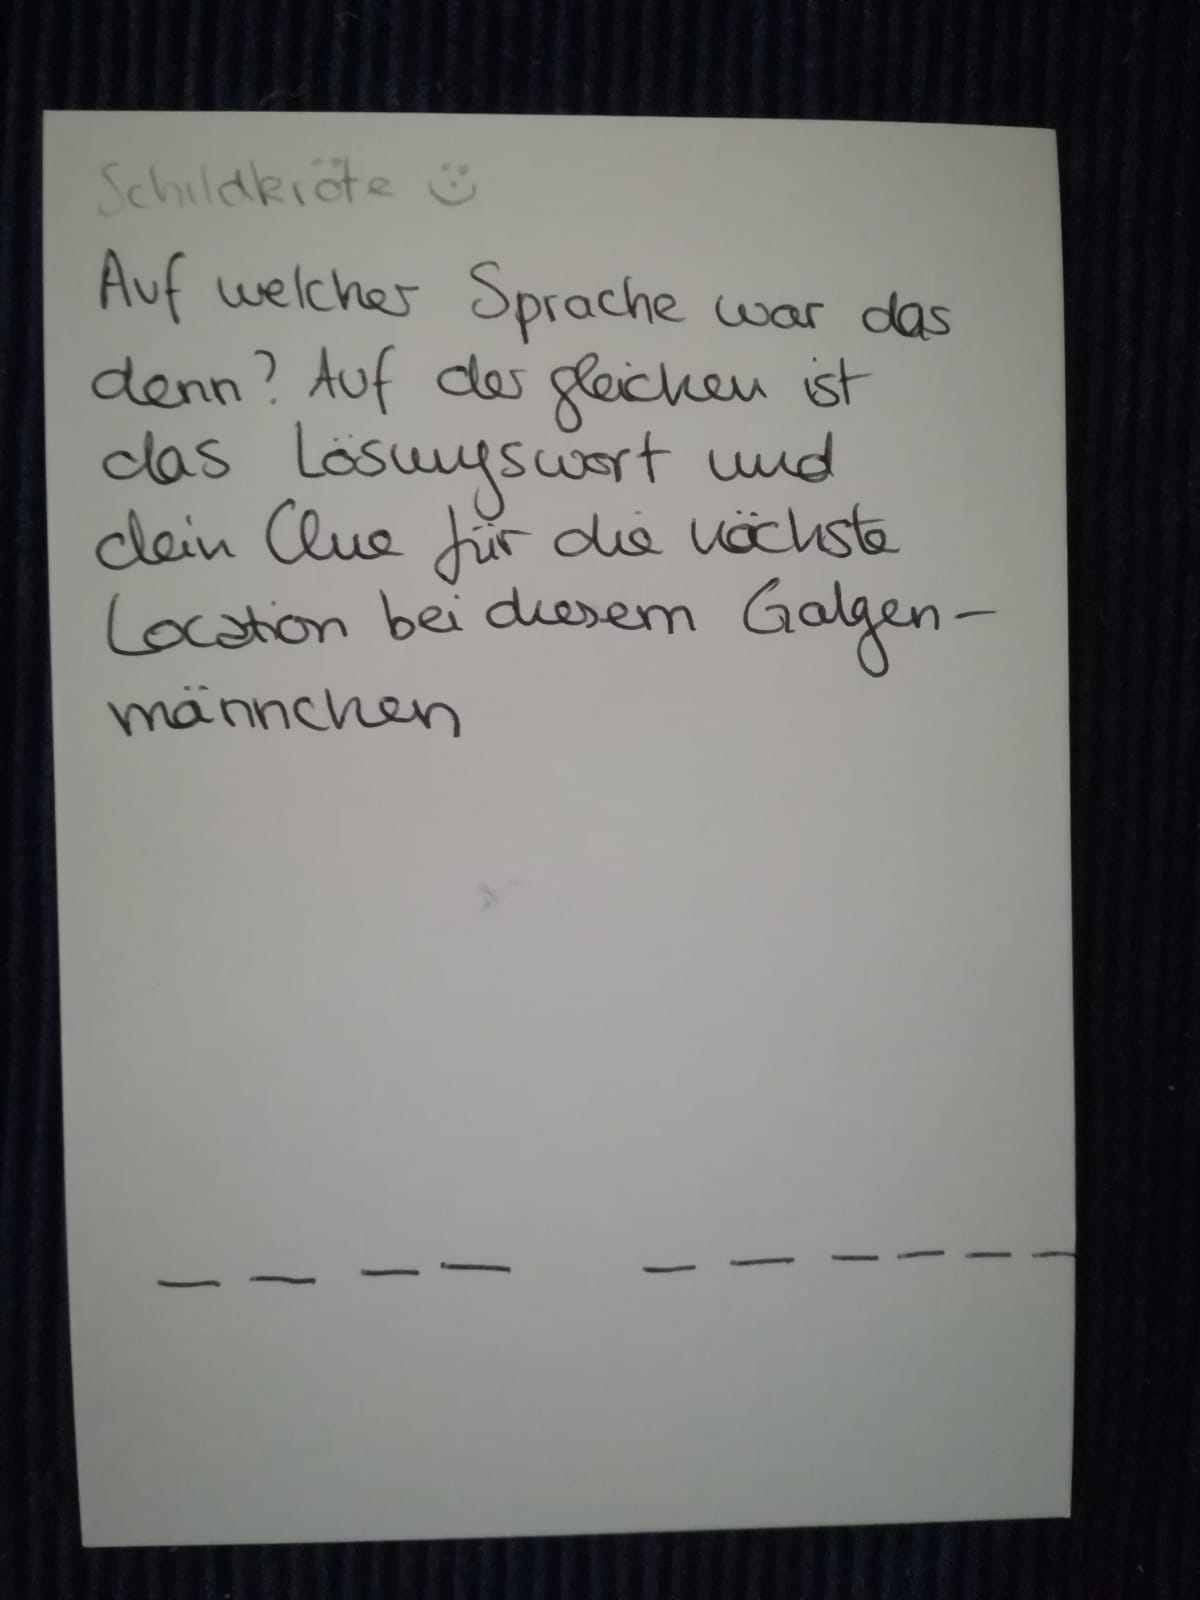 Schildkröte :)
Auf welcher Sprache war das
denn? Auf der gleichen ist
das Lösungswort und
dein Clue für die nächste
Location bei diesem Galgen-
männchen
_ _ _ _   _ _ _ _ _ _